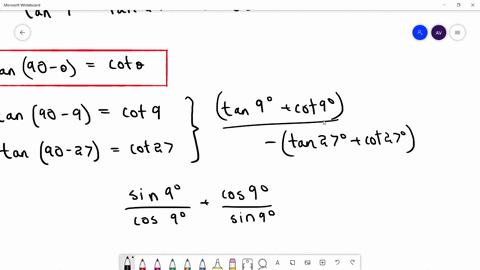 Microsoft Whiteboard
tan (90-θ) = cotθ
tan (90-9) = cot 9
tan (90-27) = cot 27
(tan 9° + cot 9°)
- (tan 27° + cot 27°)
sin 9° / cos 9° + cos 9° / sin 9°
AV